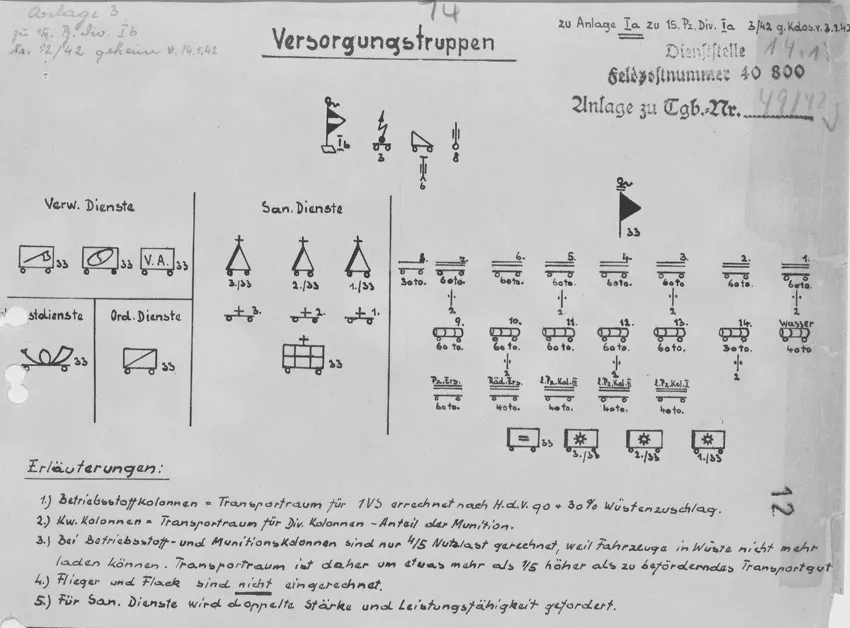 14
Anlage 3
zu 15. Pz. Div. Ib
Nr. 12/42 geheim v. 14.1.42
Versorgungstruppen
zu Anlage Ia zu 15. Pz. Div. Ia 3/42 g.Kdos. v. 3.1.42
Dienststelle 14.1.
Feldpostnummer 40 800
Anlage zu Tgb.-Nr. 49/42
Ib
3
6
8
33
Verw. Dienste
33
33
V.A. 33
San. Dienste
3./33 2./33 1./33
3. 2. 1.
33
stdienste
33
Ord. Dienste
33
8. 7. 6. 5. 4. 3. 2. 1.
30to. 60to. 60to. 60to. 60to. 60to. 60to. 60to.
2 2 2 2
9. 10. 11. 12. 13. 14. Wasser
60to. 60to. 60to. 60to. 60to. 30to. 40to
2 2 2
Pz. Ers. Räd. Ers. l.Pz.Kol.III l.Pz.Kol.II l.Pz.Kol.I
60to. 40to. 40to. 40to. 40to.
33
3./33 2./33 1./33
12
Erläuterungen:
1.) Betriebsstoffkolonnen = Transportraum für 1VS errechnet nach H.d.V. 90 + 30% Wüstenzuschlag.
2.) Kw. Kolonnen = Transportraum für Div. Kolonnen - Anteil der Munition.
3.) Bei Betriebsstoff- und Munitionskolonnen sind nur 4/5 Nutzlast gerechnet, weil Fahrzeuge in Wüste nicht mehr
laden können. Transportraum ist daher um etwas mehr als 1/5 höher als zu beförderndes Transportgut
4.) Flieger und Flack sind nicht eingerechnet.
5.) Für San. Dienste wird doppelte Stärke und Leistungsfähigkeit gefordert.